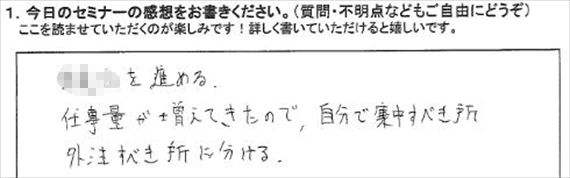 1. 今日のセミナーの感想をお書きください。（質問・不明点などもご自由にどうぞ）
ここを読ませていただくのが楽しみです！詳しく書いていただけると嬉しいです。
を進める.
仕事量が増えてきたので, 自分で集中すべき所
外注すべき所に分ける.